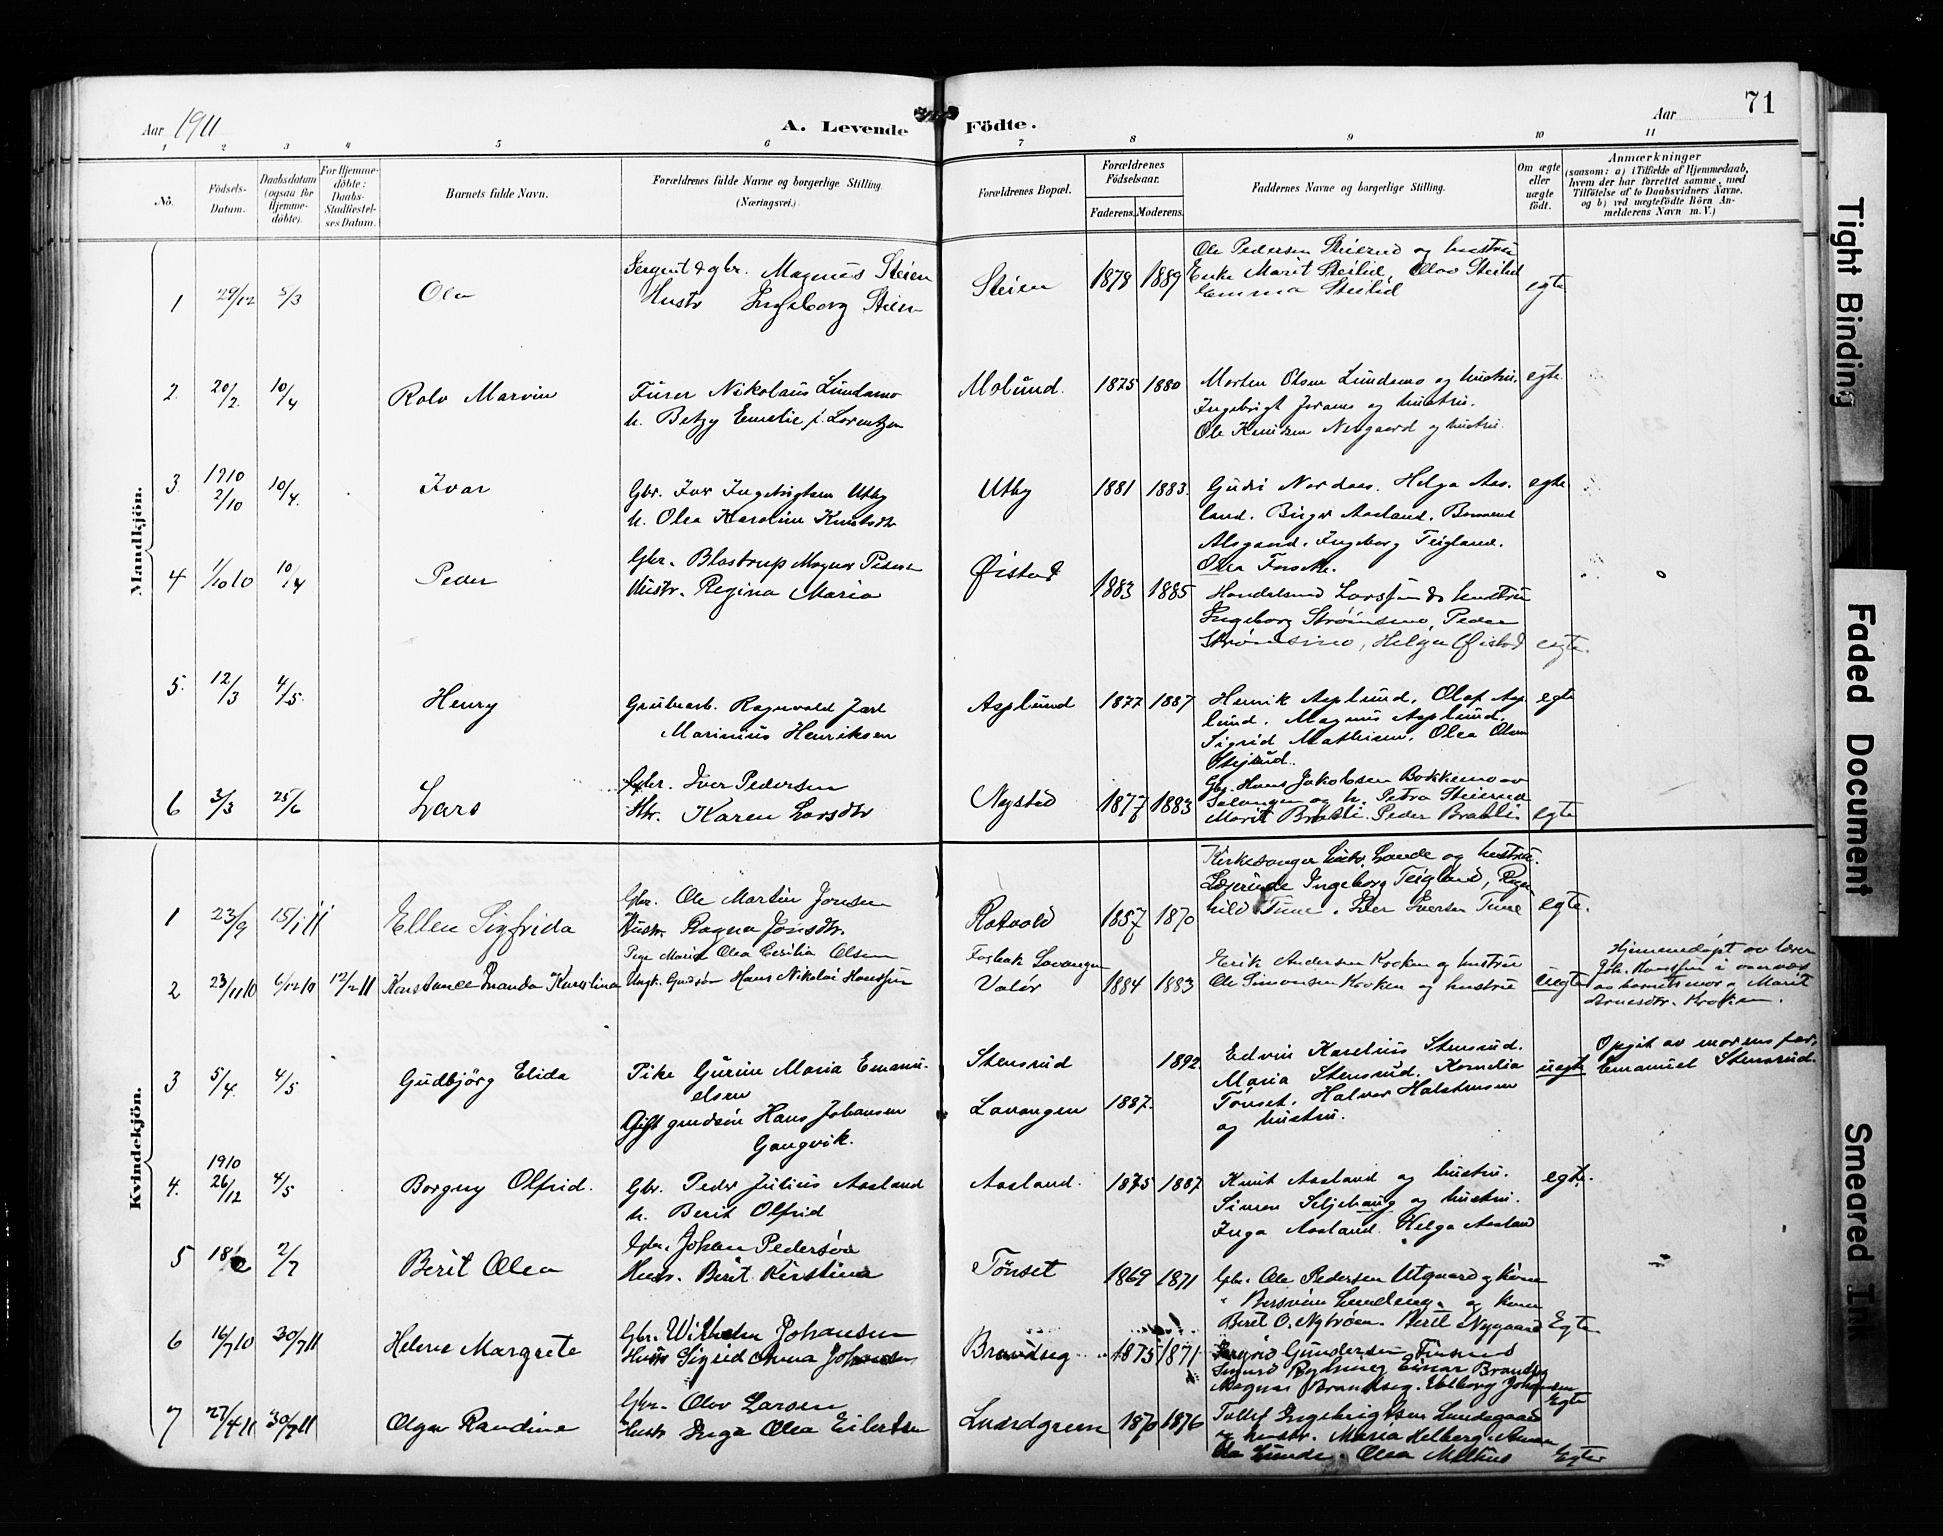 71
Aar 1911
A. Levende Födte.
Aar
1 2 3 4 5 6 7 8 9 10 11
No.
Födsels-Datum.
Daabsdatum (ogsaa for Hjemme-döbte).
For Hjemme-döbte: Daabs-Stadfæstel-ses Datum.
Barnets fulde Navn.
Forældrenes fulde Navne og borgerlige Stilling. (Næringsvei.)
Forældrenes Bopæl.
Forældrenes Födselsaar.
Faderens. Moderens.
Faddernes Navne og borgerlig Stilling.
Om ægte eller uægte födt.
Anmærkninger
(saasom: a) i Tilfælde af Hjemmedaab, hvem der har forrettet samme, med Tilföielse af to Daabsvidners Navne, og b) ved uægtefödte Börn An-melderens Navn m. V.)
Mandkjön.
1 29/12 5/3 Ola
Sergent & gbr. Magnus Steien
Hustr Ingeborg Steien
Steien 1878 1889
Ole Pedersen Steierud og hustru
Enke Marit Steilid, Olav Steilid
Emma Steilid
egte
2. 20/2. 10/4 Rolv Marvin
Furer Nikolaus Lundamo
h. Betzy Emelie f. Lorentzen
Molund. 1875 1880
Morten Olsen Lundamo og hustru.
Ingebrigt Joramo og hustru.
Ole Knudsen Nergaard og hustru.
egte
3. 1910 2/10 10/4. Ivar
Gbr. Ivar Ingebrigtsen Utby
h. Olea Karoline Knutsdtr
Utby 1881 1883.
Gudri Nordaas. Helga Aas-
land. Birger Aasland.
Alsgaard. Ingeborg Teigland.
Olea
egte
4 1/10 10 10/4 Peder
Gbr. Blostrup Magnus Peders
Hustr. Regina Maria
Øistad 1883 1885
Handelsmd Larssen & hustru
Ingeborg Strømsmo, Peder
Strømsmo, Helga Øistad
egte.
5. 12/3 4/5. Henry
Grubearb. Ragnvald Jarl
Marinius Henriksen
Asplund 1877 1887
Henrik Asplund. Olaf Asp-
lund. Magnus Asplund.
Sigrid Mathisen. Olea Olsen
egte
6 3/3 25/6 Lars
Gbr. Iver Pedersen
Htr. Karen Larsdtr
Nystad 1877 1883
Gbr. Hans Jakobsen Bakkemo av
Salangen og h. Petra Steierud
Marit Brabli. Peder Brabli.
egte
Kvindekjön.
1 23/9 15/1 11 Ellen Sigfrida
Gbr. Ole Martin Jonsen
Hustr. Ragna Jonsdtr.
Rotvold 1857 1870
Kirkesanger Lande og hustru.
Lærerinde Ingeborg Teigland, Ragn-
hild Tune. Peder Iversen Tune
egte.
2 23/11 10 6/12 10 12/2 11 Konstance Wanda Karolina
Pige Marie Olea Cecilia Olsen
Ungk. Gaardbr Hans Nikolai Hanssen
Fosbak Lavangen
Valør 1884 1883
Erik Andersen Kroken og hustru
Ole Simonsen Kroken og hustru
uegte
Hjemmedøpt av lærer
Joh. Hanssen i overvær
av barnets mor og Marit
Arnesdtr. Kroken.
3 5/4. 4/5 Gudbjörg Elida
Pike Gurine Maria Emanu-
elsen
Gift gmdsøn Hans Johansen
Gangvik.
Stensrud 1892
Lavangen 1887.
Edvin Karelius Stensrud.
Maria Stensrud. Kornelia
Tönset. Halvor Halstensen
og hustru.
uegte
Opgit av morens far,
Emanuel Stensrud.
4. 1910 26/12 4/5 Borgny Olfrid.
Gbr. Peder Julius Aasland
h. Berit Olfrid
Aasland. 1875 1887
Knut Aasland og hustru.
Simen Seljehaug og hustru.
Inga Aasland. Helga Aasland
egte.
5 18/ 2/7 Berit Olea
Gbr. Johan Pedersøn
Hustr. Berit Kirstina
Tönset 1869 1871
Gbr. Ole Pedersen Utgaard og kone
" Bersvein Lundeng og kone
Berit O. Nybröen. Berit Nygaard
Egte
6 16/7 10 30/7 11 Helene Margrete
Gbr. Wilhelm Johansen
Hustr Sigrid Anna Johansen
Brandseg 1875 1871
Sigrid Gundersen
Sigurd Einar Brandseg
Magnus Brandseg. Johansen
Egte
7 27/4 11 30/7 11 Olga Randine
Gbr. Olav Larsen
Hustr Inga Olea Eilertsen
Lundgrenn 1870 1876
Tollef Ingebrigtsen Lundegaard
og hustr. Maria Kelberg
Lunde. Olea Melhus
Egte
Tight Binding
Faded Document
Smeared Ink